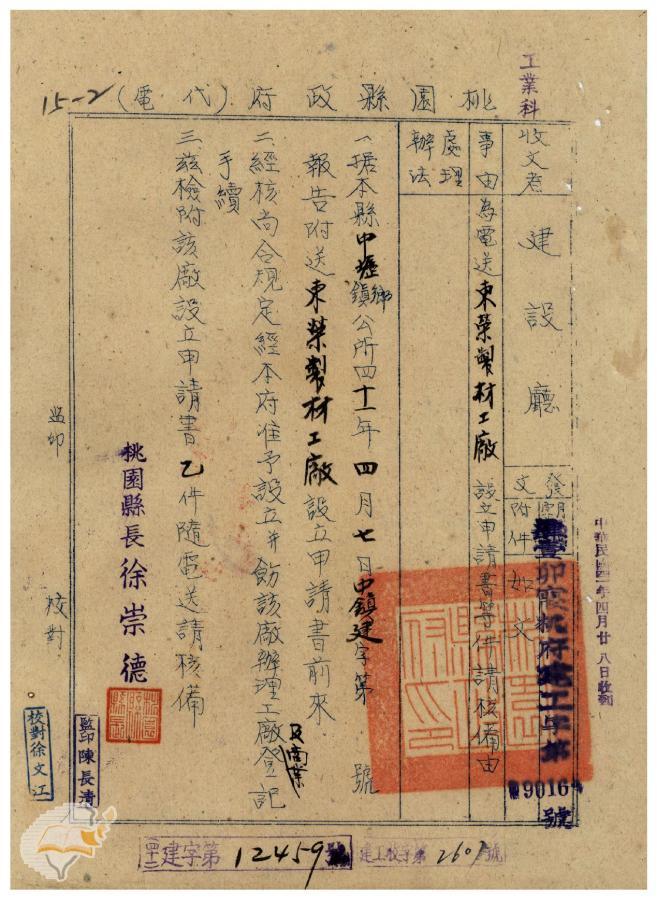 工業科
桃園縣政府(代電)
15-2
收文者 建設廳
發文
附件 如文
肆壹卯 桃府建工字第
9016
號
中華民國四一年四月廿八日收到
事由 為電送東榮製材工廠設立申請書等件請核備由
處理辦法
一、据本縣中壢鄉鎮公所四十一年四月七日中鎮建字第 號
報告附送東榮製材工廠設立申請書前來
二、經核尚合規定經本府准予設立并飭該廠辦理工廠及商業登記
手續
三、茲檢附該廠設立申請書乙件隨電送請核備
桃園縣長徐崇德
監印
校對
監印陳長清
校對徐文江
四十一建字第12459號
建工收字第2607號